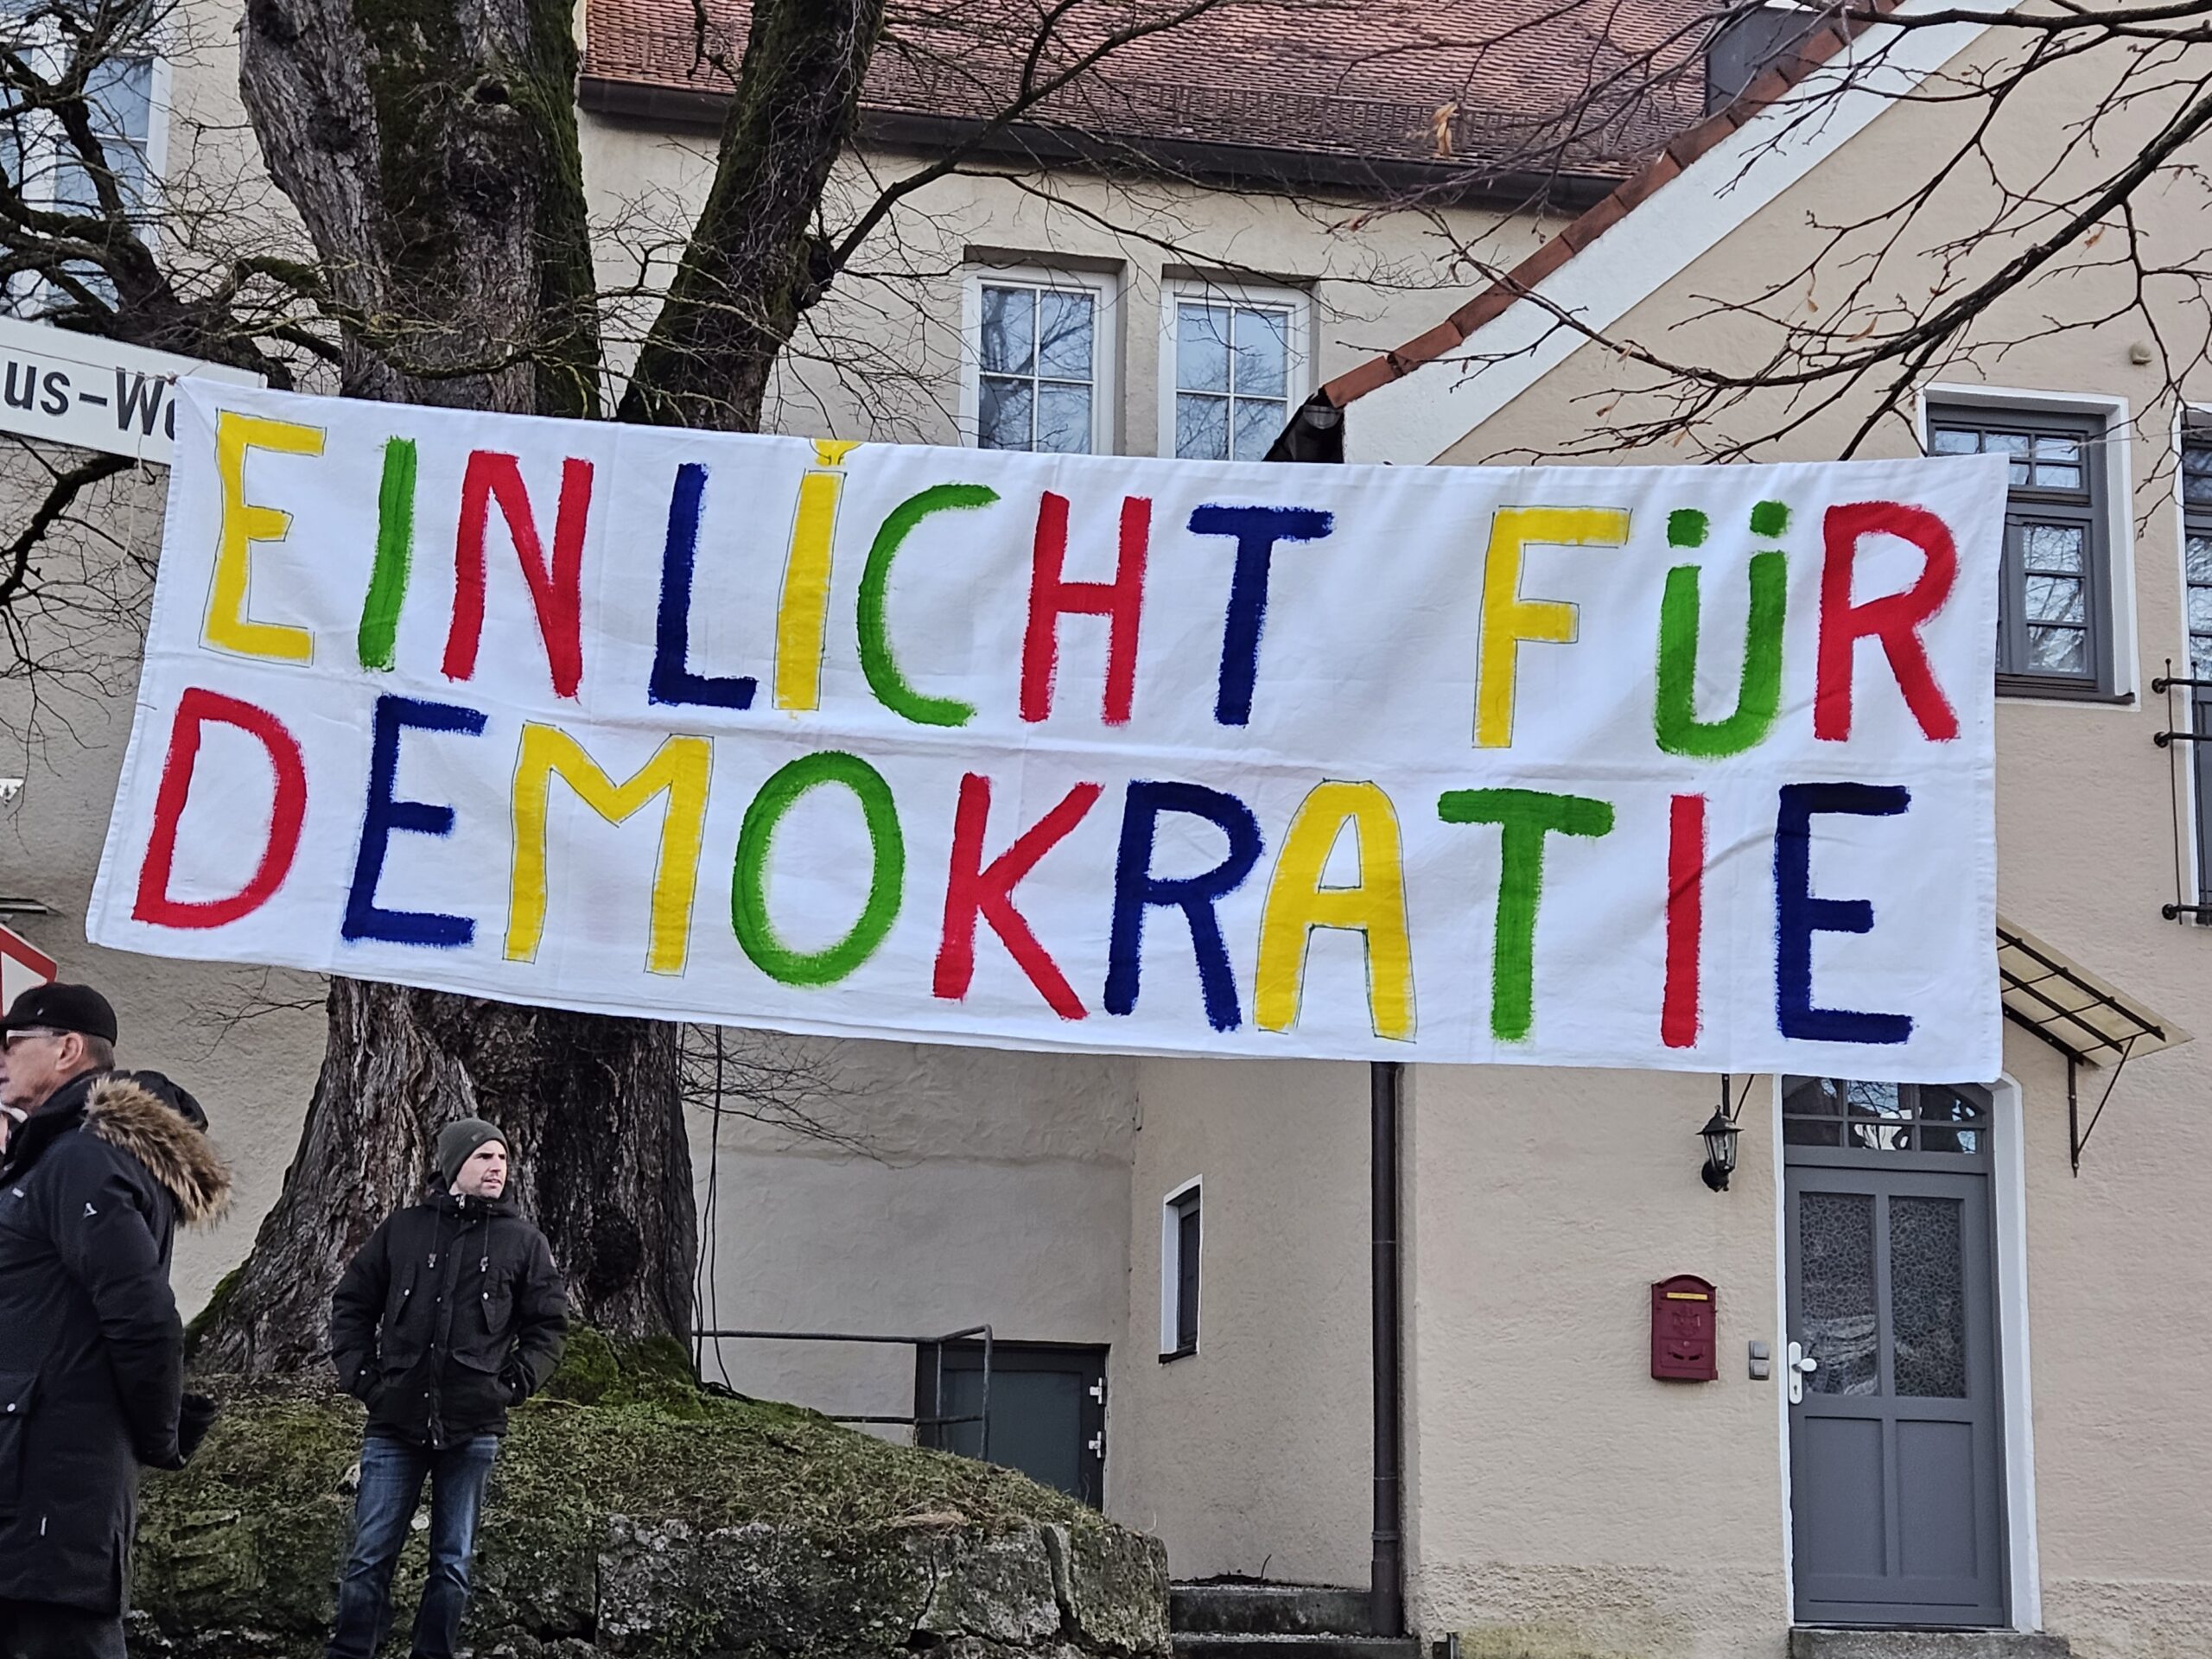 EIN LICHT FÜR
DEMOKRATIE